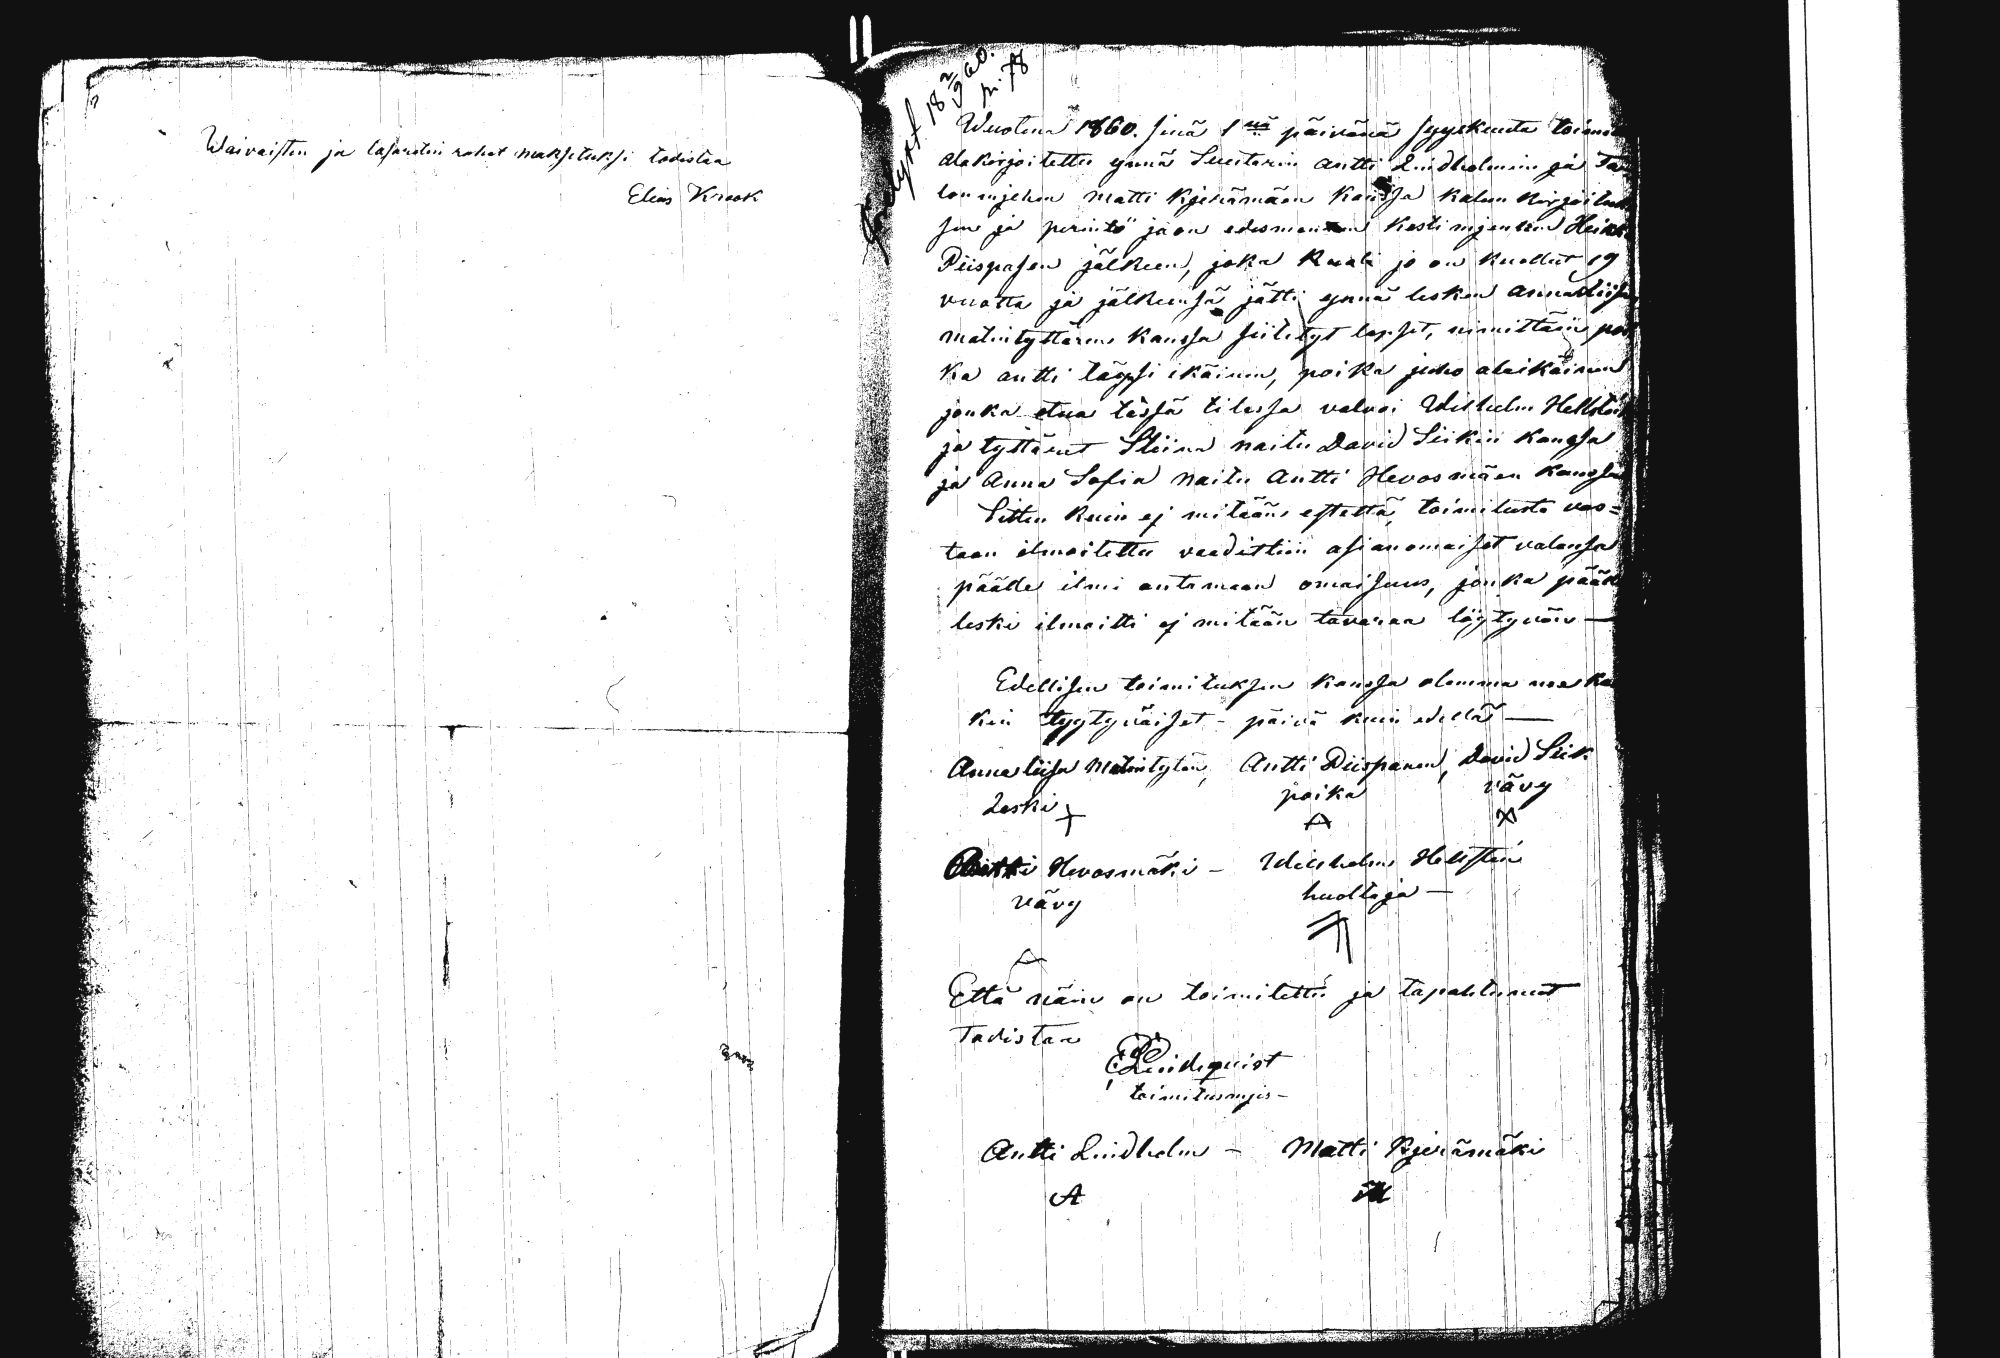 Waivaisten ja lasaretin rahat maksetuksi todistaa
Elias Krook
18 2/9 60.
n: 78
Wuotena 1860. sinä 1nä päivänä syyskuuta toimit
alakirjoitettu ynnä Luutarin Antti Lindholmin ja Ta
lonmjehen Matti Kjerämäen kanssa kalun kirjoituk
sen ja perintö jaon edesmenen Kestimjenhen Heikki
Piispasen jälkeen, joka kuali jo on kuollut 19
vuotta ja jälkeensä jätti ynnä lesken Annaliisa
matintyttären kanssa siitetyt lapset, nimittäin poi
ka antti täysi ikäinen, poika juho alaikäinen
jonka etua tässä tilassa valvoi Wilhelm Hellstein
ja tyttäret Stiina naitu David Siikin kanssa
ja Anna Sofia naitu Antti Hevosmäen kanssa
Sitten kuin ej mitään estettä, toimitusta vas=
taan ilmoitettu vaadittiin asianomaiset valansa
päälle ilmi antamaan omaisuus, jonka pääll
leski ilmoitti ej mitään tavaraa löytyvän —
Edellisen toimituksen kanssa olemma me ka
kin tyytyväiset - päivä kuin edellä —
Annaliisa Matintytär, Antti Piispanen, David Siik
Leski poika vävy
Antti Hevosmäki - Wilhelm Hellstein
vävy huoltaja —
Että näin on toimitettu ja tapahtunut
todistaa
Lindquist
toimitusmjes -
Antti Lindholm - Matti Kjerämäki
A M